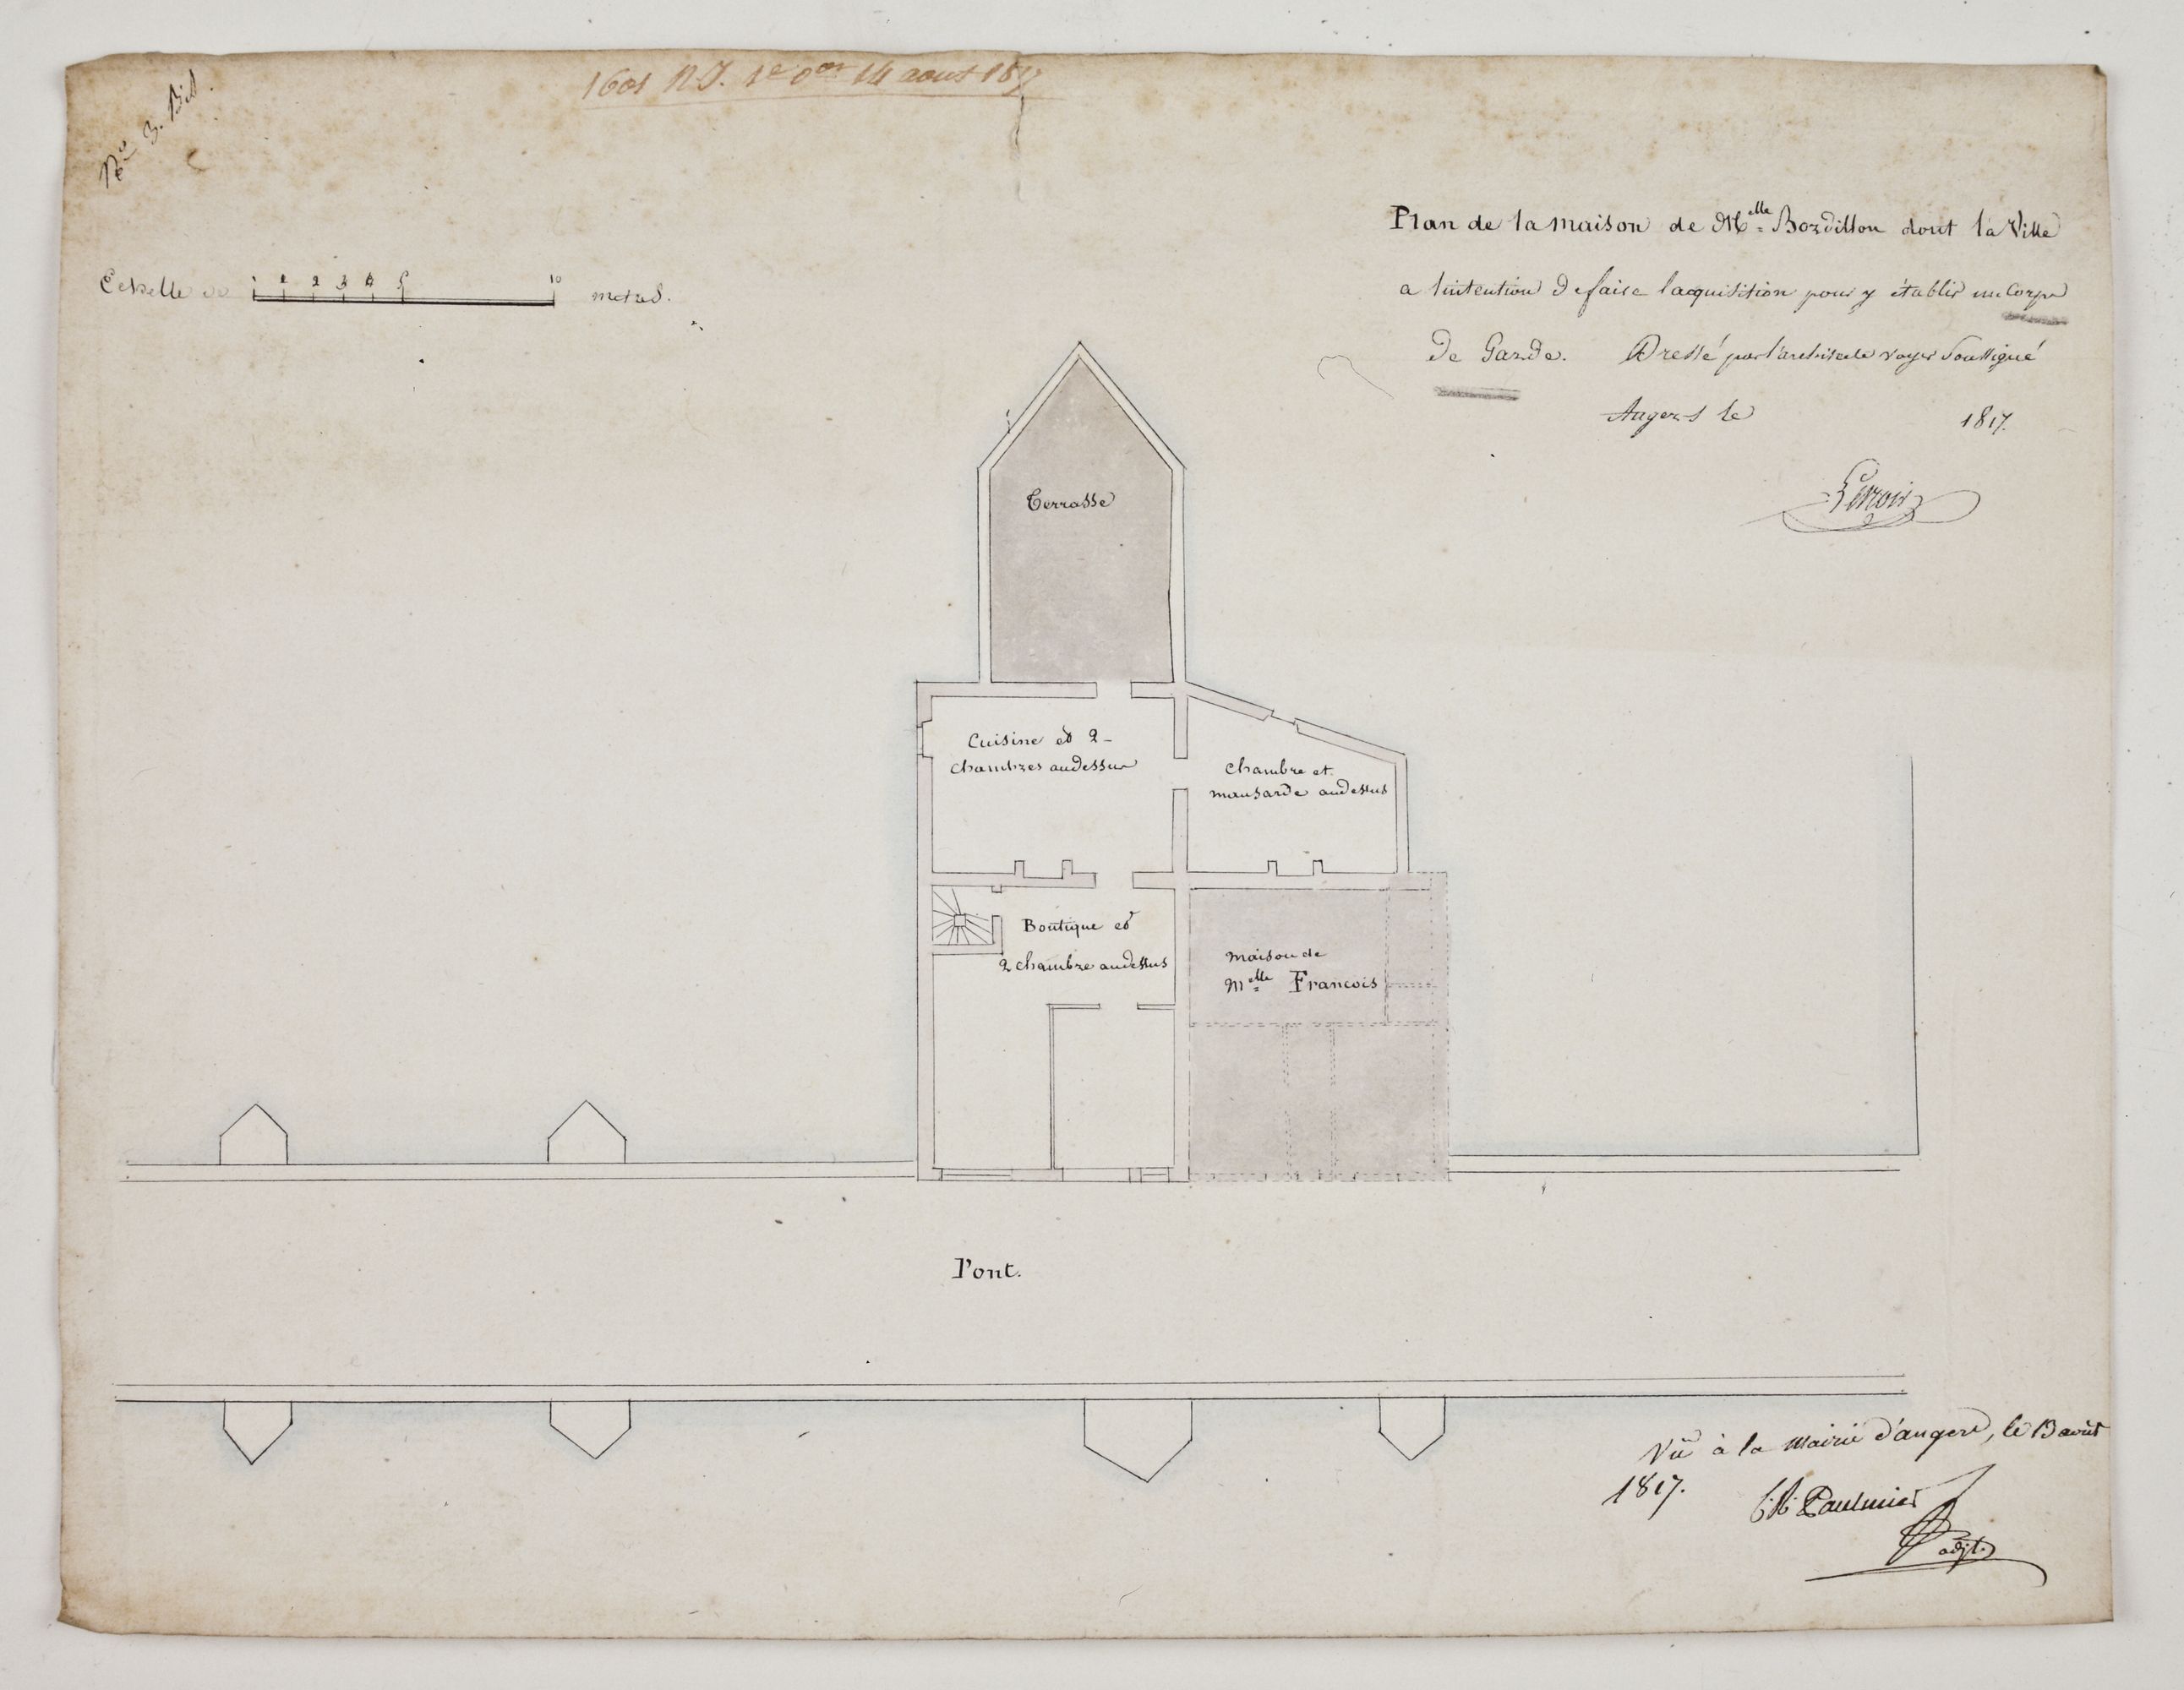 1601 N.I. 1e Don 14 aout 1817
No 3. Bis.
Plan de la maison de Melle Bordillon dont la Ville
a lintention de faire lacquisition pour y établir un Corps
de Garde. Dressé par l'architecte voyer Soussigné
Angers le 1817.
Lenoir
Echelle de 1 2 3 4 5 10 metres.
Terrasse
Cuisine et 2
chambres audessus
Chambre et
mansarde audessus
Boutique et
2 chambre audessus
Maison de
Melle Francois
Pont.
Vû à la Mairie d'angers, le 13 août
1817.
Paulmier
adjt.